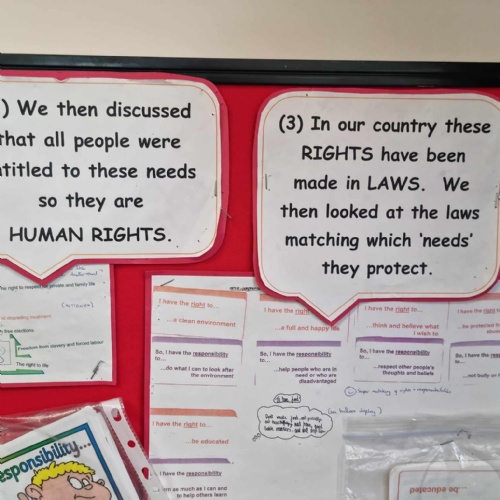 ) We then discussed
that all people were
ntitled to these needs
so they are
HUMAN RIGHTS.
(3) In our country these
RIGHTS have been
made in LAWS. We
then looked at the laws
matching which 'needs'
they protect.
The right to respect for private and family life
Freedom from slavery and forced labour
The right to
I have the right to...
...a clean environment
So, I have the responsibility
to...
...do what I can to look after
the environment
I have the right to...
...a full and happy life
So, I have the responsibility
to...
...help people who are in
need or who are
disadvantaged
I have the right to...
...think and believe what
I wish to
So, I have the responsibility
to...
...respect other people's
thoughts and beliefs
I have the right to...
...be protected
So, I have the
to...
...not bully or
I have the right to...
...be educated
I have the responsibility
as much as I can and
to help others learn
esponsibility...
...be educated